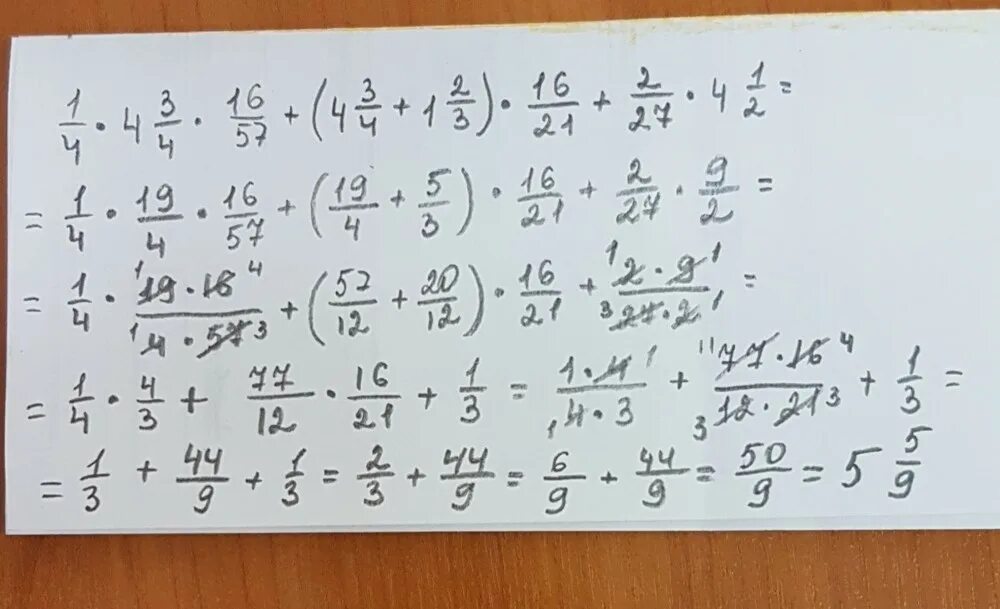 1/4 · 4 3/4 · 16/57 + (4 3/4 + 1 2/3) · 16/21 + 2/27 · 4 1/2 =
= 1/4 · 19/4 · 16/57 + (19/4 + 5/3) · 16/21 + 2/27 · 9/2 =
= 1/4 · ¹19 · 16⁴ / ¹4 · 57₃ + (57/12 + 20/12) · 16/21 + ¹2 · 9¹ / ³27 · 2¹ =
= 1/4 · 4/3 + 77/12 · 16/21 + 1/3 = 1 · 4¹ / ₁4 · 3 + ¹¹77 · 16⁴ / ₃12 · 21₃ + 1/3 =
= 1/3 + 44/9 + 1/3 = 2/3 + 44/9 = 6/9 + 44/9 = 50/9 = 5 5/9